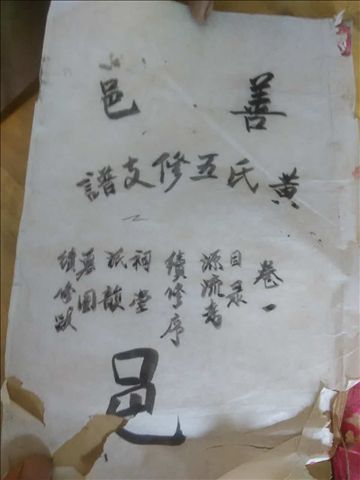 善邑
黄氏五修支譜
卷一
目录
源流考
續修序
祠堂
墓图
續修跋
邑